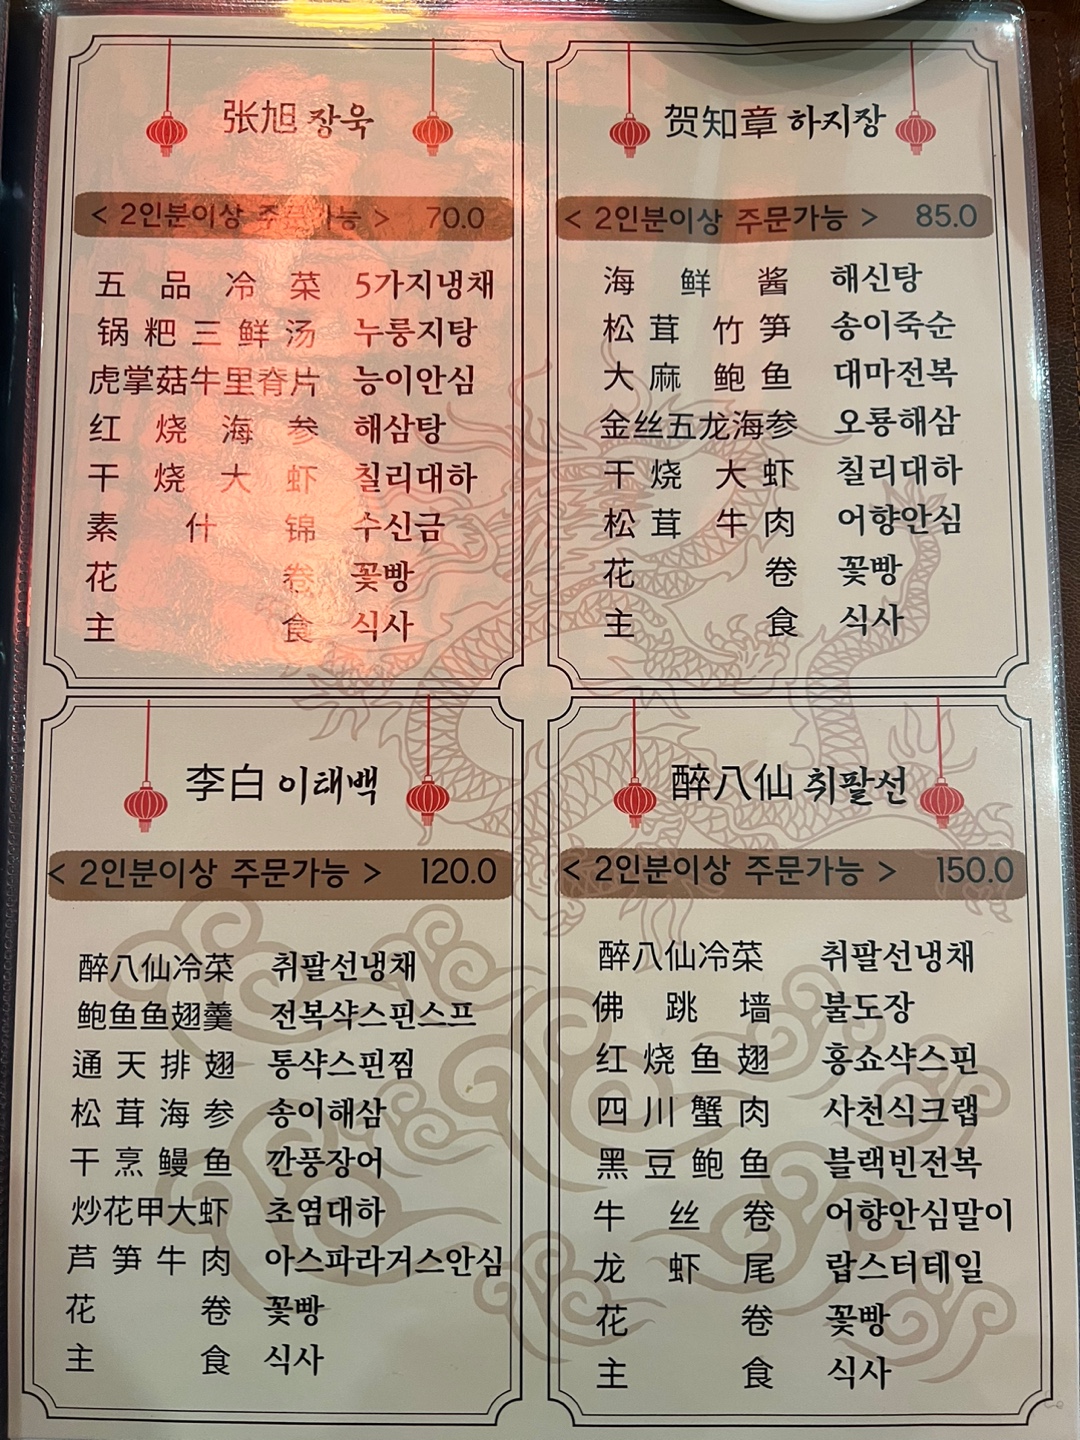 张旭 장욱
< 2인분이상 주문가능 > 70.0
五品冷菜 5가지냉채
锅粑三鲜汤 누룽지탕
虎掌菇牛里脊片 능이안심
红烧海参 해삼탕
干烧大虾 칠리대하
素什锦 수신금
花卷 꽃빵
主食 식사
贺知章 하지장
< 2인분이상 주문가능 > 85.0
海鲜酱 해신탕
松茸竹笋 송이죽순
大麻鲍鱼 대마전복
金丝五龙海参 오룡해삼
干烧大虾 칠리대하
松茸牛肉 어향안심
花卷 꽃빵
主食 식사
李白 이태백
< 2인분이상 주문가능 > 120.0
醉八仙冷菜 취팔선냉채
鲍鱼鱼翅羹 전복샥스핀스프
通天排翅 통샥스핀찜
松茸海参 송이해삼
干烹鳗鱼 깐풍장어
炒花甲大虾 초염대하
芦笋牛肉 아스파라거스안심
花卷 꽃빵
主食 식사
醉八仙 취팔선
< 2인분이상 주문가능 > 150.0
醉八仙冷菜 취팔선냉채
佛跳墙 불도장
红烧鱼翅 홍쇼샥스핀
四川蟹肉 사천식크랩
黑豆鲍鱼 블랙빈전복
牛丝卷 어향안심말이
龙虾尾 랍스터테일
花卷 꽃빵
主食 식사